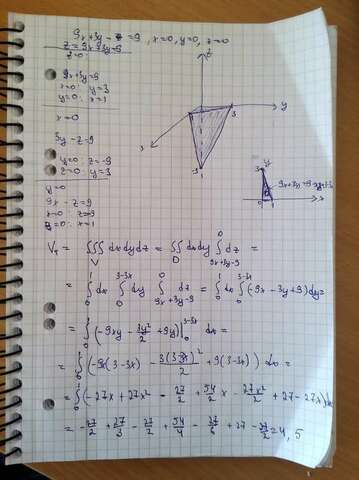 9x+3y-z=9, x=0, y=0, z=0
z=9x+3y-9
z=0
9x+3y=9
x=0 y=3
y=0 x=1
x=0
3y-z=9
y=0 z=-9
z=0 y=3
y=0
9x-z=9
x=0
z=0 x=1
z
y
x
3
1
y
3
9x+3y=9
0
1
x
V_T = ∭_V dxdydz = ∬_D dxdy ∫_{9x+3y-9}^{0} dz =
= ∫_0^1 dx ∫_0^{3-3x} dy ∫_{9x+3y-9}^{0} dz = ∫_0^1 dx ∫_0^{3-3x} (-9x-3y+9)dy =
= ∫_0^1 (-9xy - 3y²/2 + 9y)|_0^{3-3x} dx =
= ∫_0^1 (-9x(3-3x) - 3(3-3x)²/2 + 9(3-3x)) dx =
= ∫_0^1 (-27x+27x² - 27/2 + 54/2 x - 27x²/2 + 27-27x)dx
= -27/2 + 27/3 - 27/2 + 54/4 - 27/6 + 27 - 27/2 = 4,5